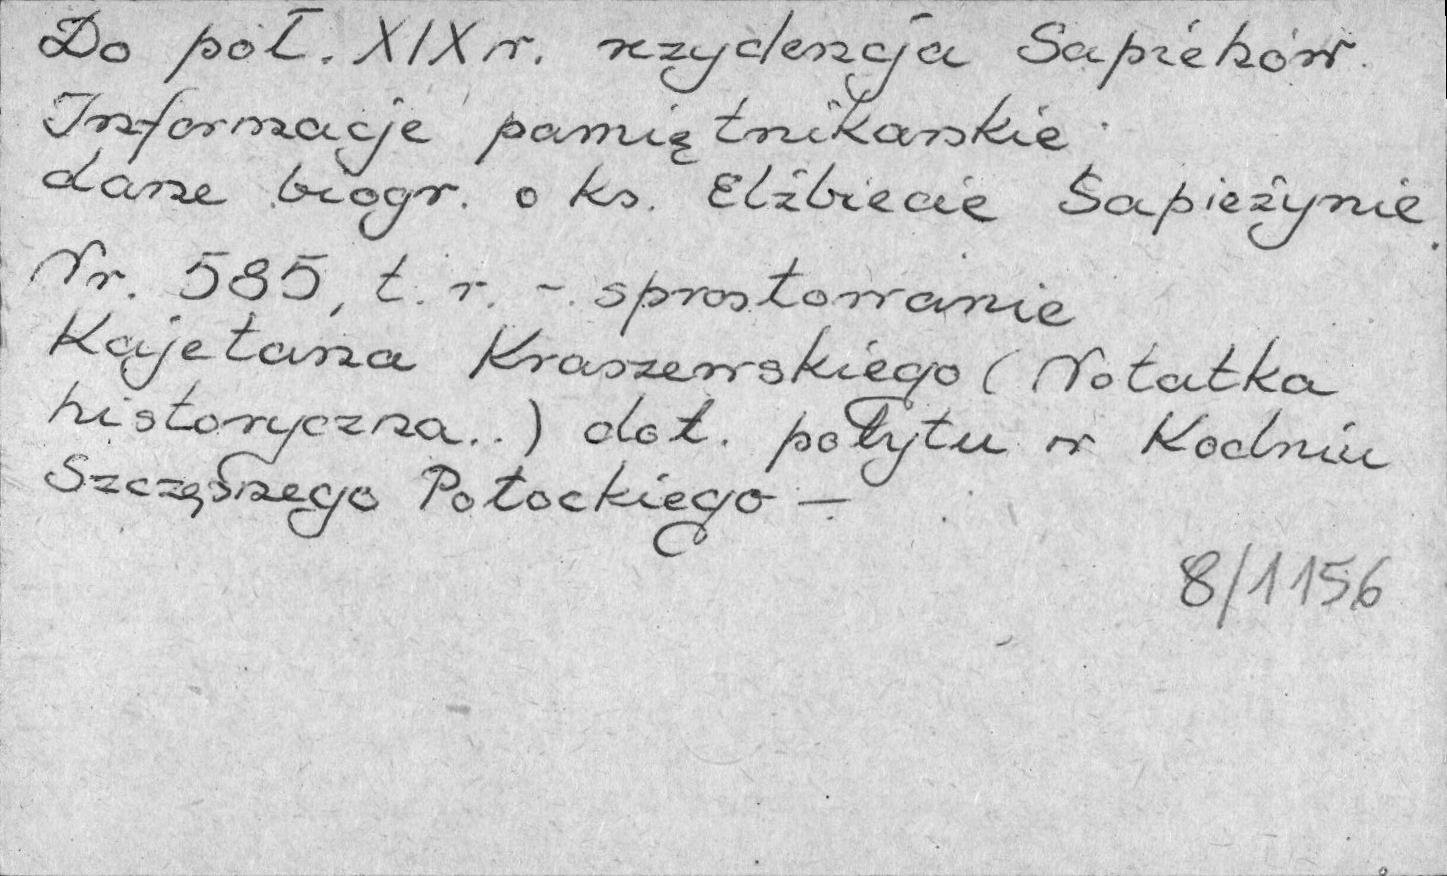 Do poł. XIX w. rezydencja Sapiehów.
Informacje pamiętnikarskie
dane biogr. o ks. Elżbiecie Sapieżynie.
Nr. 585, t. r. - sprostowanie
Kajetana Kraszewskiego (Notatka
historyczna..) dot. pobytu w Kodniu
Szczęsnego Potockiego —
8/1156